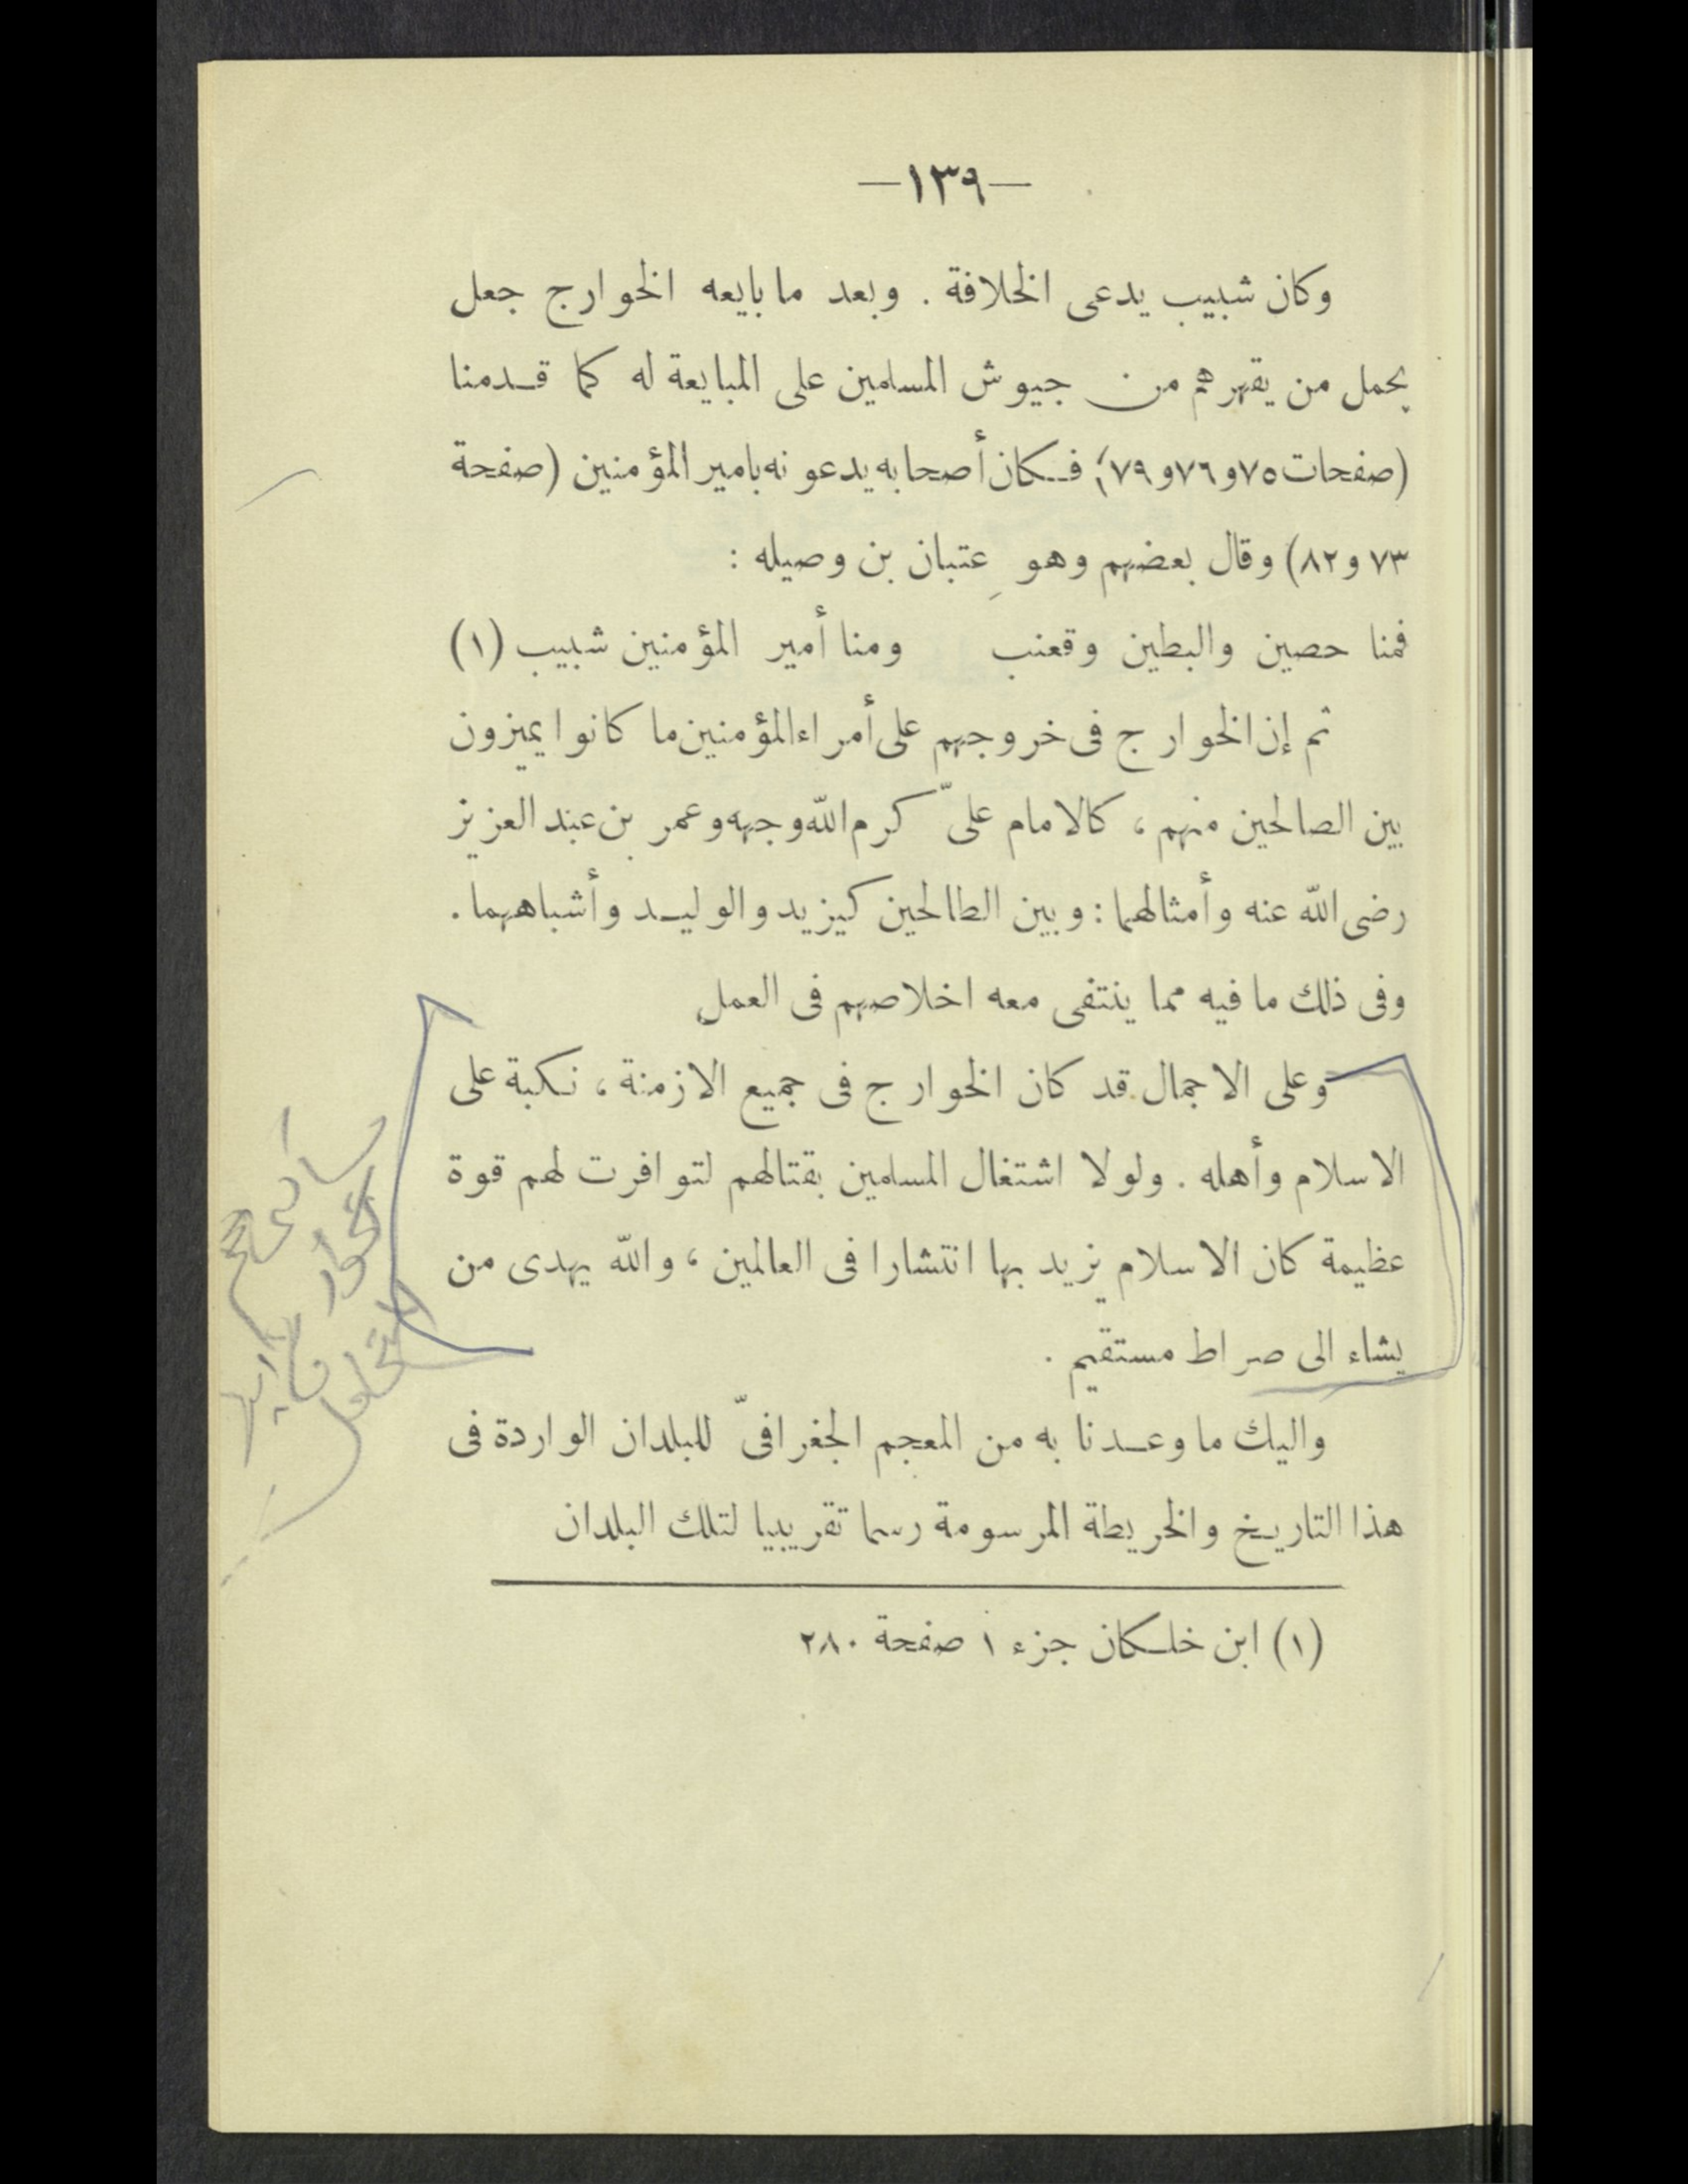 —١٣٩—
وكان شبيب يدعى الخلافة . وبعد ما بايعه الخوارج جعل
يحمل من يقهرهم من جيوش المسلمين على المبايعة له كما قدمنا
(صفحات ٧٥ و٧٦ و٧٩)؛ فكان أصحابه يدعونه بامير المؤمنين (صفحة
٧٣ و٨٢) وقال بعضهم وهو عتبان بن وصيله :
فمنا حصين والبطين وقعنب ومنا أمير المؤمنين شبيب (١)
ثم إن الخوارج فى خروجهم على أمراء المؤمنين ما كانوا يميزون
بين الصالحين منهم ، كالامام علىّ كرم الله وجهه وعمر بن عبد العزيز
رضى الله عنه وأمثالهما : وبين الطالحين كيزيد والوليد وأشباههما .
وفى ذلك ما فيه مما ينتفى معه اخلاصهم فى العمل
وعلى الاجمال قد كان الخوارج فى جميع الازمنة ، نكبة على
الاسلام وأهله . ولولا اشتغال المسلمين بقتالهم لتوافرت لهم قوة
عظيمة كان الاسلام يزيد بها انتشارا فى العالمين ، والله يهدى من
يشاء الى صراط مستقيم .
واليك ما وعدنا به من المعجم الجغرافىّ للبلدان الواردة فى
هذا التاريخ والخريطة المرسومة رسما تقريبيا لتلك البلدان
(١) ابن خلكان جزء ١ صفحة ٢٨٠